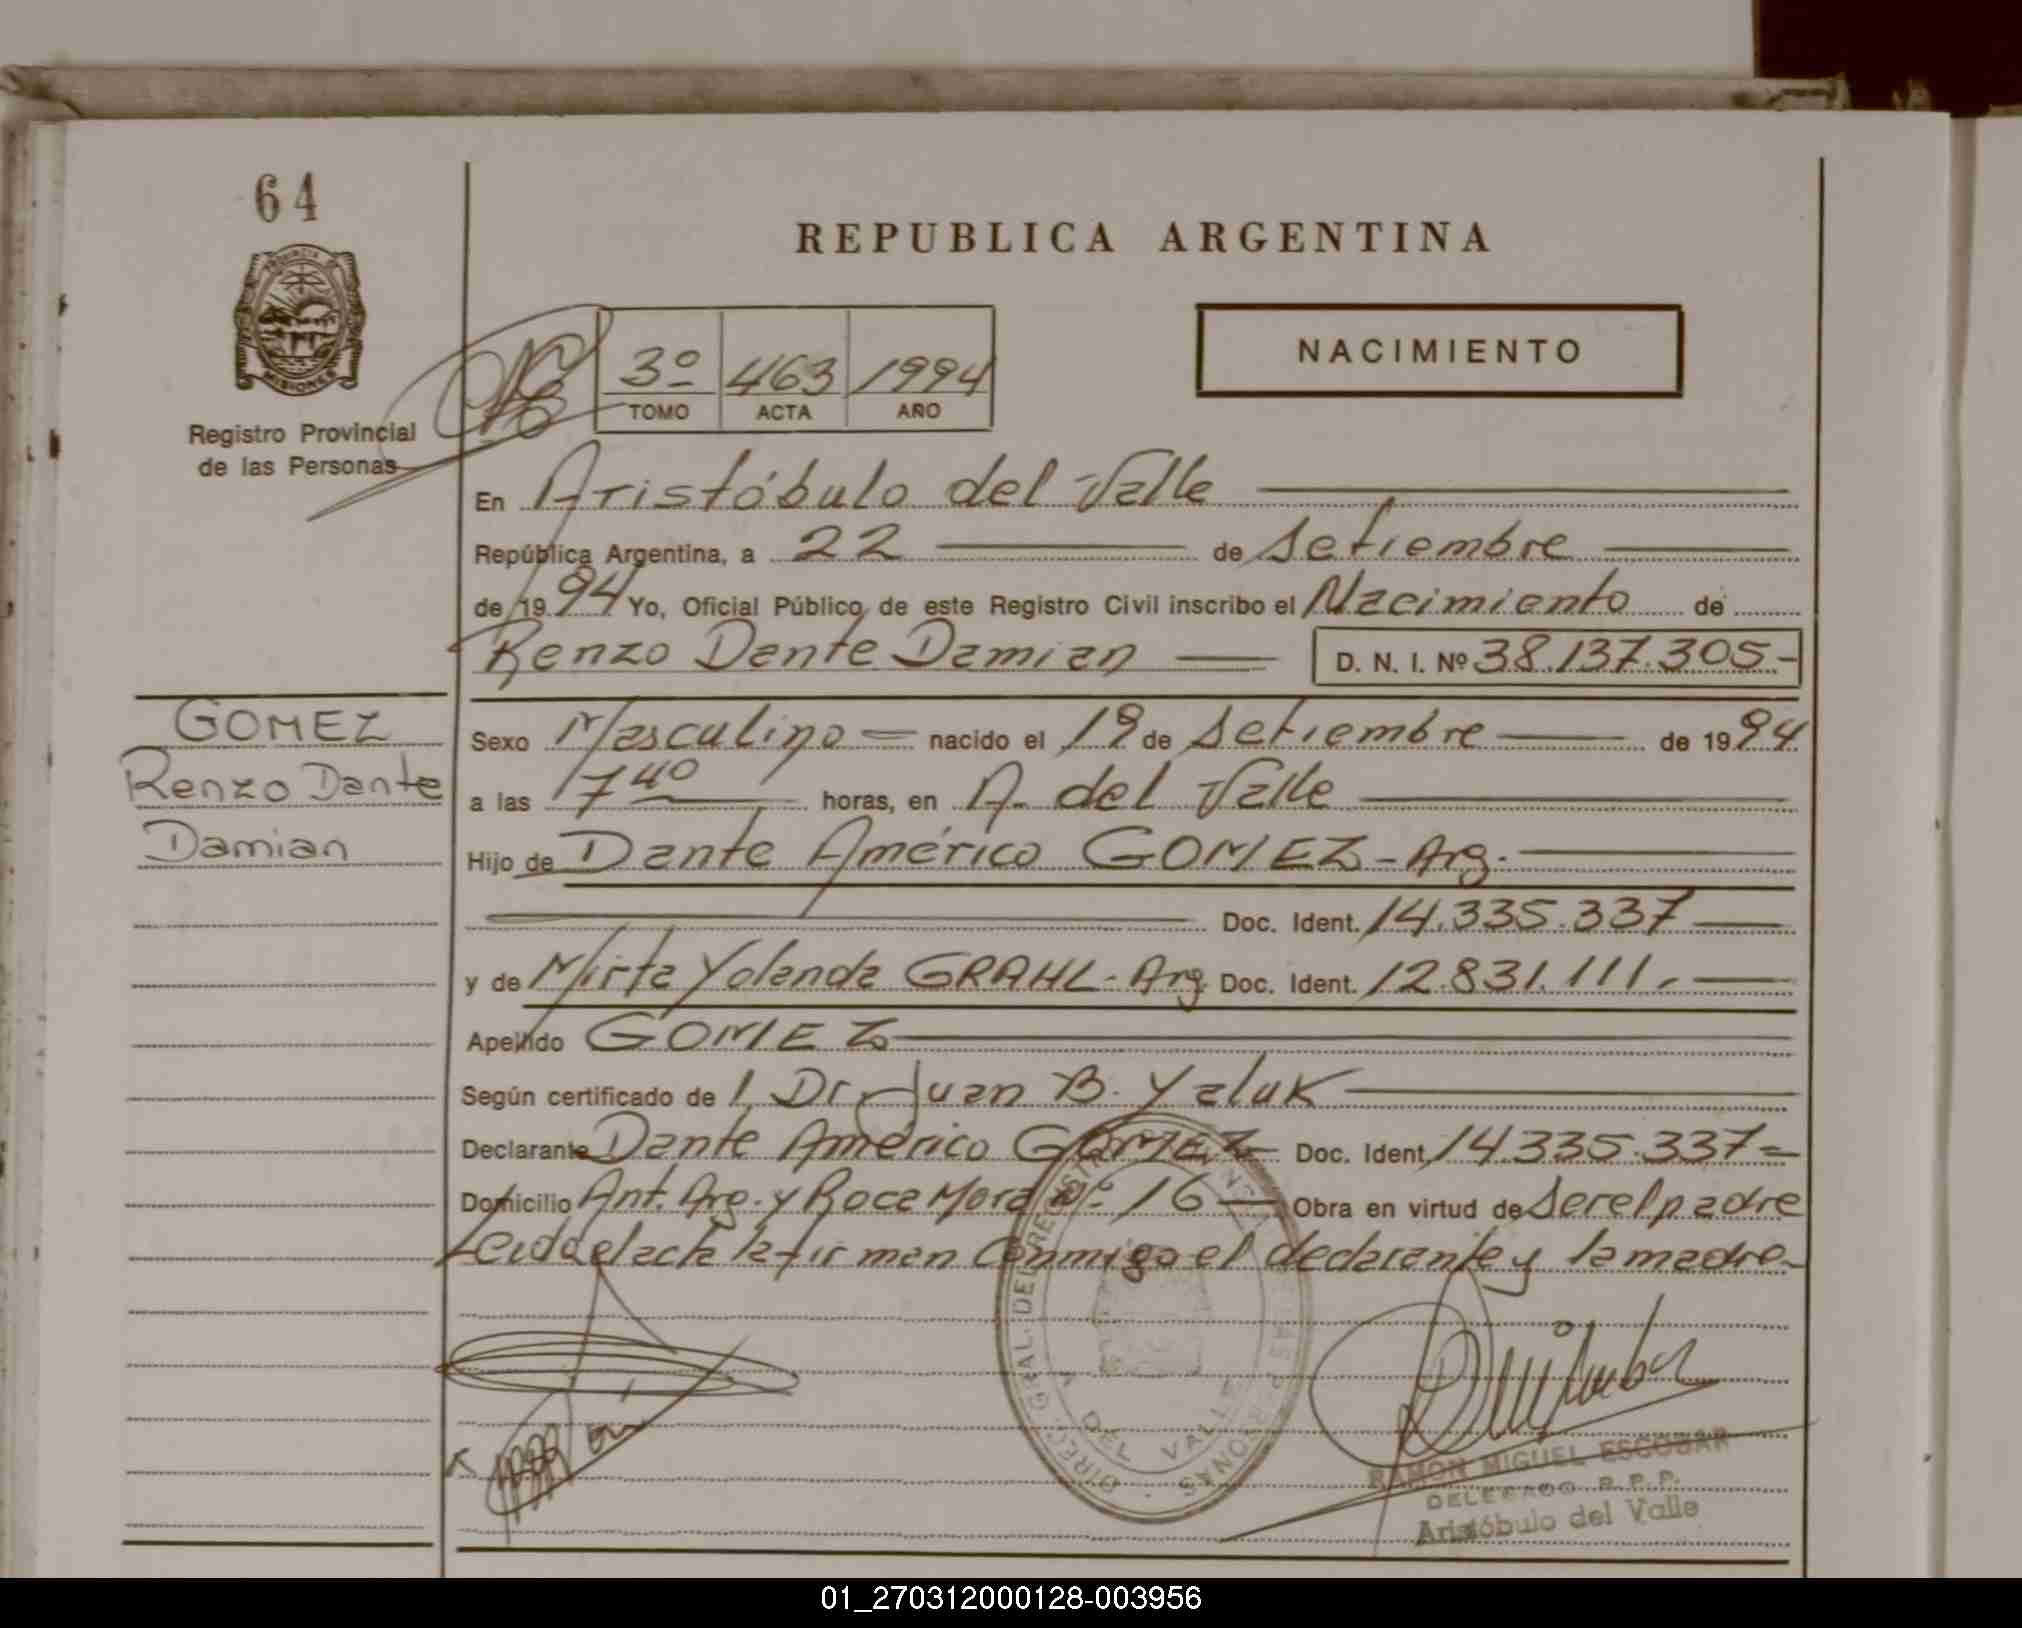 64
REPUBLICA ARGENTINA
MISIONES
Registro Provincial
de las Personas
3º 463 1994
TOMO ACTA AÑO
NACIMIENTO
En Aristóbulo del Valle
República Argentina, a 22 de Setiembre
de 1994 Yo, Oficial Público de este Registro Civil inscribo el Nacimiento de
Renzo Dante Damian D. N. I. Nº 38.137.305-
GOMEZ
Renzo Dante
Damian
Sexo Masculino nacido el 19 de Setiembre de 1994
a las 7 40 horas, en A. del Valle
Hijo de Dante Américo GOMEZ - Arg.
Doc. Ident. 14.335.337
y de Mirta Yolanda GRAHL - Arg. Doc. Ident. 12.831.111.-
Apellido GOMEZ
Según certificado de l Dr. Juan B. Yaluk
Declarante Dante Américo GOMEZ Doc. Ident. 14.335.337=
Domicilio Ant. Arg. y Roca Mora Nº 16 Obra en virtud de Ser el padre
Leida el acta la firman Conmigo el declarante y la madre-
DEL VALLE
RAMON MIGUEL ESCOBAR
DELEGADO R.P.P.
Aristóbulo del Valle
01_270312000128-003956